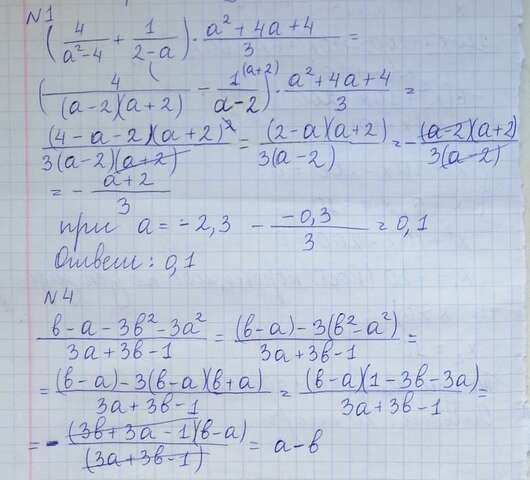 N1
(4/(a²-4) + 1/(2-a)) · (a²+4a+4)/3 =
(4/((a-2)(a+2)) - 1^(a+2)/(a-2)) · (a²+4a+4)/3 =
((4-a-2)(a+2)²)/(3(a-2)(a+2)) = ((2-a)(a+2))/(3(a-2)) = - ((a-2)(a+2))/(3(a-2))
= - (a+2)/3
при a = -2,3 - (-0,3)/3 = 0,1
Ответ: 0,1
N4
(в-a-3в²-3a²)/(3a+3в-1) = ((в-a)-3(в²-a²))/(3a+3в-1) =
= ((в-a)-3(в-a)(в+a))/(3a+3в-1) = ((в-a)(1-3в-3a))/(3a+3в-1) =
= - ((3в+3a-1)(в-a))/((3a+3в-1)) = a-в